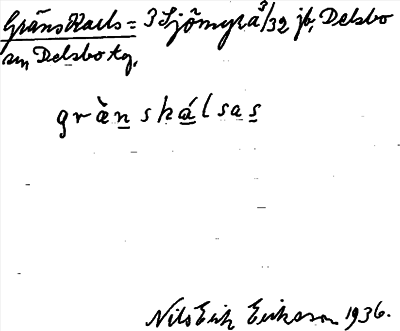 Gräns Kails = 3 Sjömyra 3/32 jb, Delsbo
sn, Delsbo tg.
grä̀nshálsas
Nils Erik Eriksson 1936.